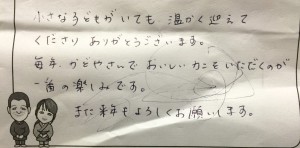 小さな子どもがいても 温かく迎えて
くださり ありがとうございます。
毎年、かどやさんで おいしいカニをいただくのが
一番の楽しみです。
また来年もよろしくお願いします。